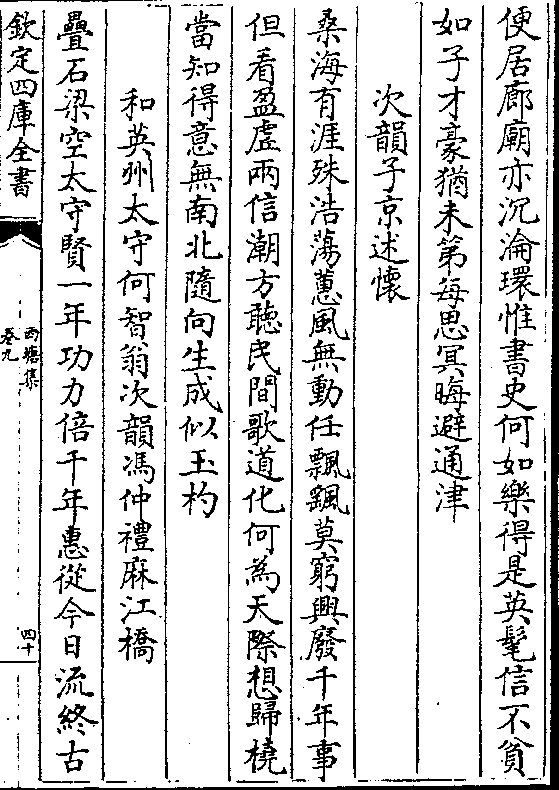 便居廊廟亦沉淪環惟書史何如樂得是英髦信不貧
如子才豪猶未第每思冥晦避通津
次韻子京述懷
桑海有涯殊浩蕩蕙風無動任飄颻莫窮興廢千年事
但看盈虛兩信潮方聽民間歌道化何為天際想歸橈
當知得意無南北隨向生成似玉杓
和英州太守何智翁次韻馮仲禮麻江橋
疊石梁空太守賢一年功力倍千年惠從今日流終古
欽定四庫全書
西塘集
卷九
四十